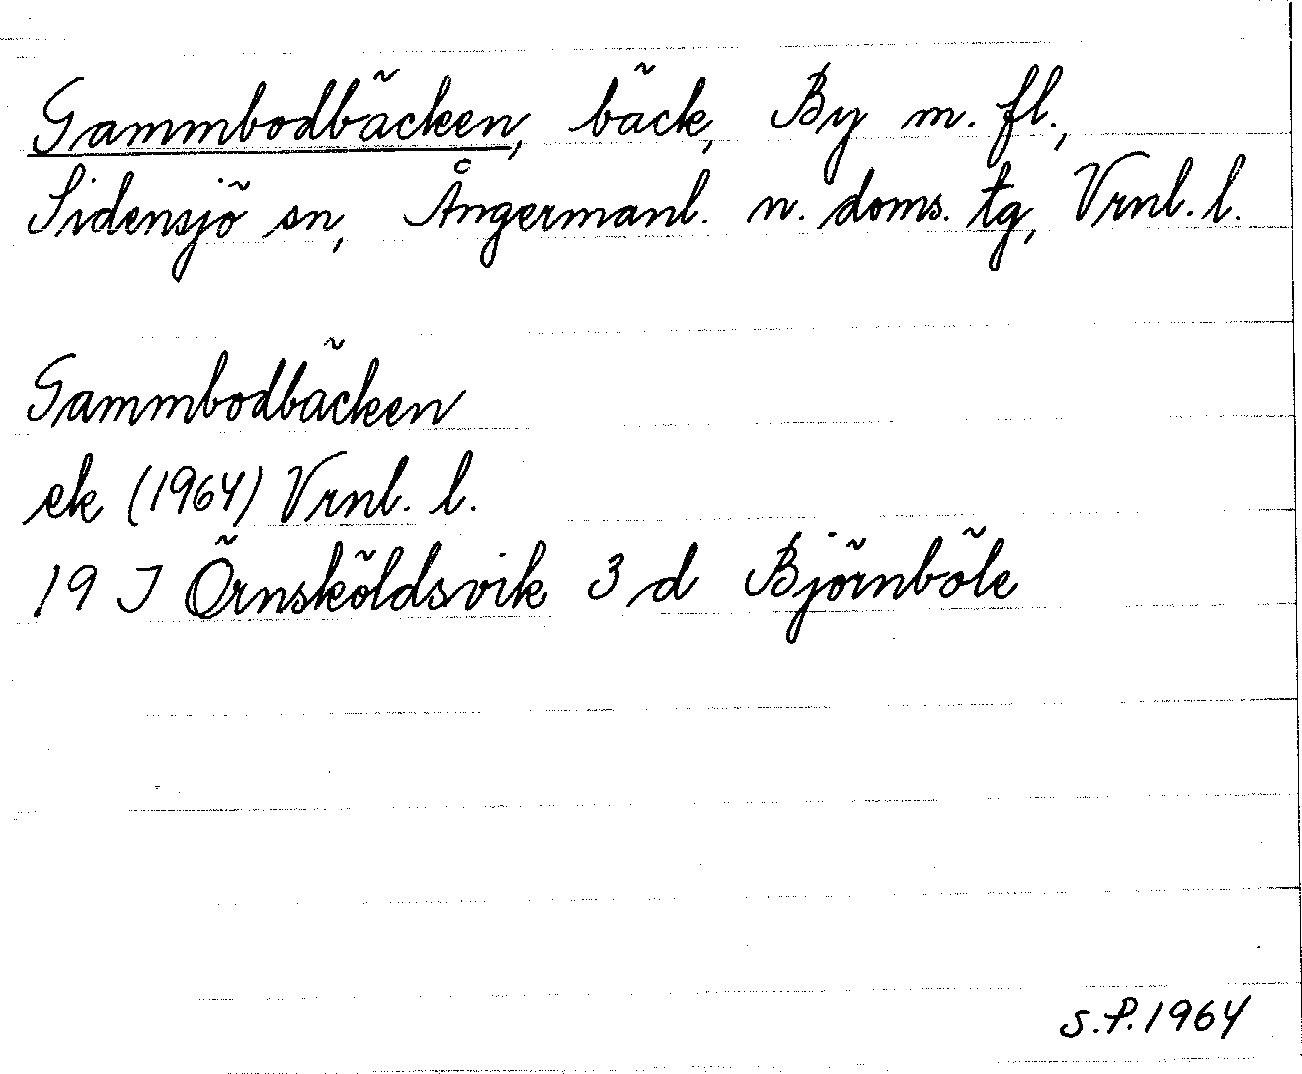 Gammbodbäcken, bäck, By m. fl.,
Sidensjö sn, Ångermanl. n. doms. tg, Vrnl. l.
Gammbodbäcken
ek (1964) Vrnl. l.
19 J Örnsköldsvik 3 d Björnböle
S.P. 1964